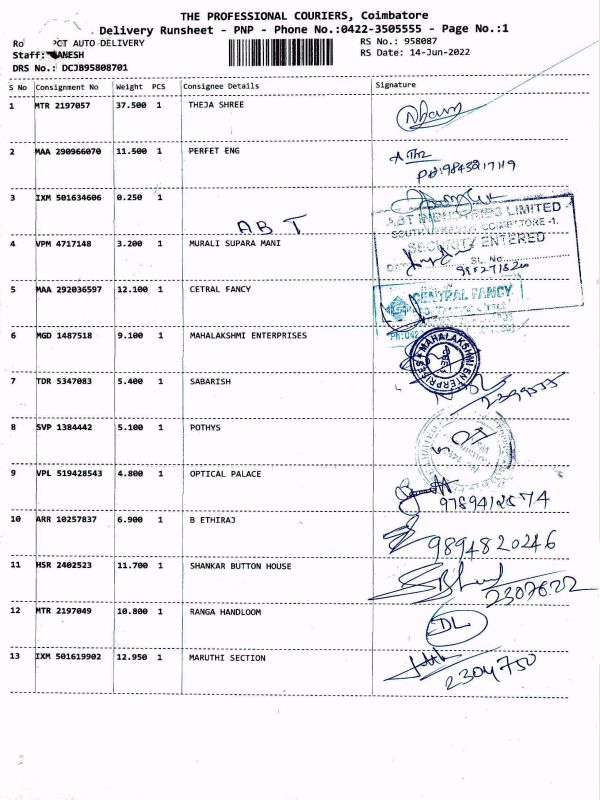 THE PROFESSIONAL COURIERS, Coimbatore
Delivery Runsheet - PNP - Phone No.:0422-3505555 - Page No.:1
AUTO-DELIVERY
RS No.: 958087
Staff: ANESH
RS Date: 14-Jun-2022
DRS No.: DCJB95808701
S No Consignment No Weight PCS Consignee Details Signature
1 MTR 2197057 37.500 1 THEJA SHREE
2 MAA 290966070 11.500 1 PERFET ENG
3 IXM 501634606 0.250 1
ABT
ABT INDUSTRIES LIMITED
COIMBATORE-1.
SECURITY ENTERED
SL. No.
4 VPM 4717148 3.200 1 MURALI SUPARA MANI
5 MAA 292036597 12.100 1 CETRAL FANCY
CENTRAL FANCY
6 MGD 1487518 9.100 1 MAHALAKSHMI ENTERPRISES
MAHALAKSHMI ENTERPRISES
7 TDR 5347083 5.400 1 SABARISH
8 SVP 1384442 5.100 1 POTHYS
9 VPL 519428543 4.800 1 OPTICAL PALACE
10 ARR 10257837 6.900 1 B ETHIRAJ
9894820246
11 HSR 2402523 11.700 1 SHANKAR BUTTON HOUSE
2307622
12 MTR 2197049 10.800 1 RANGA HANDLOOM
DL
13 IXM 501619902 12.950 1 MARUTHI SECTION
2304750